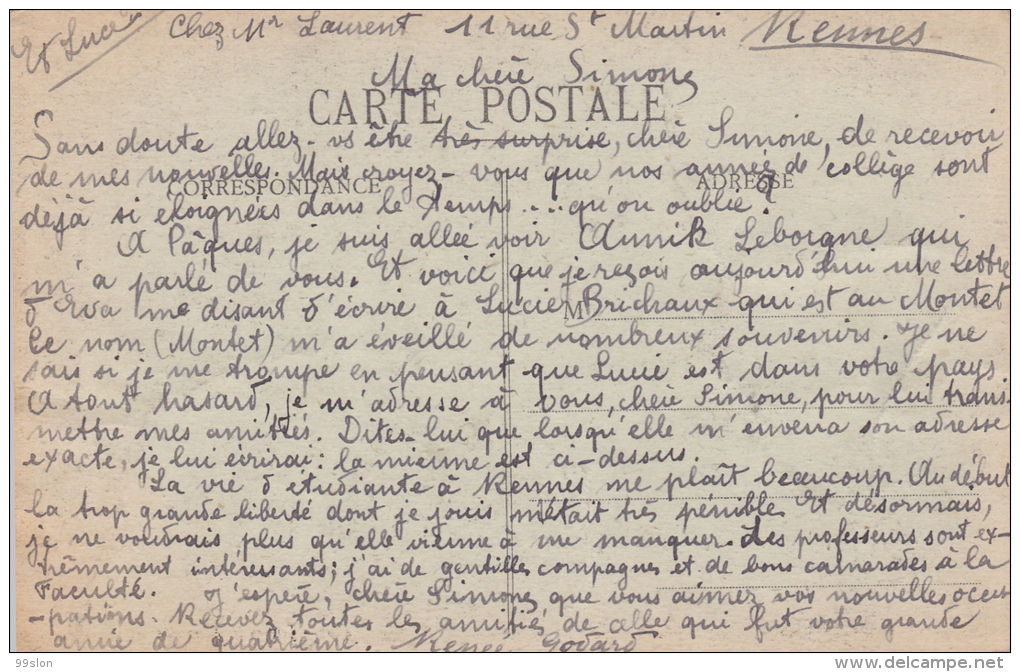 Et Lucie
Chez Mr Laurent 11 rue St Martin Rennes
Ma chère Simone
CARTE POSTALE
Sans doute allez-vs être très surprise, chère Simone, de recevoir
de mes nouvelles. Mais croyez-vous que nos années de collège sont
CORRESPONDANCE ADRESSE
déjà si éloignées dans le temps... qu'on oublie ?
A Pâques, je suis allée voir Annik Leborgne qui
m'a parlé de vous. Et voici que je reçois aujourd'hui une lettre
d'Eva me disant d'écrire à Lucie Brichaux qui est au Montet
M
Ce nom (Montet) m'a éveillé de nombreux souvenirs. Je ne
sais si je me trompe en pensant que Lucie est dans votre pays.
A tout hasard, je m'adresse à vous, chère Simone, pour lui trans-
mettre mes amitiés. Dites-lui que, lorsqu'elle m'enverra son adresse
exacte, je lui écrirai : la mienne est ci-dessus.
La vie d'étudiante à Rennes me plaît beaucoup. Au début
la trop grande liberté dont je jouis m'était très pénible. Et désormais,
je ne voudrais plus qu'elle vienne à me manquer. Les professeurs sont ex-
trêmement intéressants ; j'ai de gentilles compagnes et de bons camarades à la
Faculté. J'espère, chère Simone, que vous aimez vos nouvelles occu-
-pations. Recevez toutes les amitiés de celle qui fut votre grande
amie de quatrième. Renée Godard
99slon
www.delcampe.net